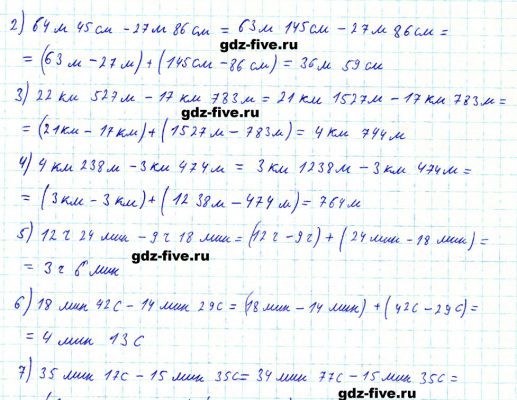 2) 64 м 45 см - 27 м 86 см = 63 м 145 см - 27 м 86 см =
gdz-five.ru
= (63 м - 27 м) + (145 см - 86 см) = 36 м 59 см
3) 22 км 527 м - 17 км 783 м = 21 км 1527 м - 17 км 783 м =
gdz-five.ru
= (21 км - 17 км) + (1527 м - 783 м) = 4 км 744 м
4) 4 км 238 м - 3 км 474 м = 3 км 1238 м - 3 км 474 м =
= (3 км - 3 км) + (1238 м - 474 м) = 764 м
5) 12 ч 24 мин - 9 ч 18 мин = (12 ч - 9 ч) + (24 мин - 18 мин) =
gdz-five.ru
= 3 ч 6 мин
6) 18 мин 42 с - 14 мин 29 с = (18 мин - 14 мин) + (42 с - 29 с) =
gdz-five.ru
= 4 мин 13 с
7) 35 мин 17 с - 15 мин 35 с = 34 мин 77 с - 15 мин 35 с =
gdz-five.ru